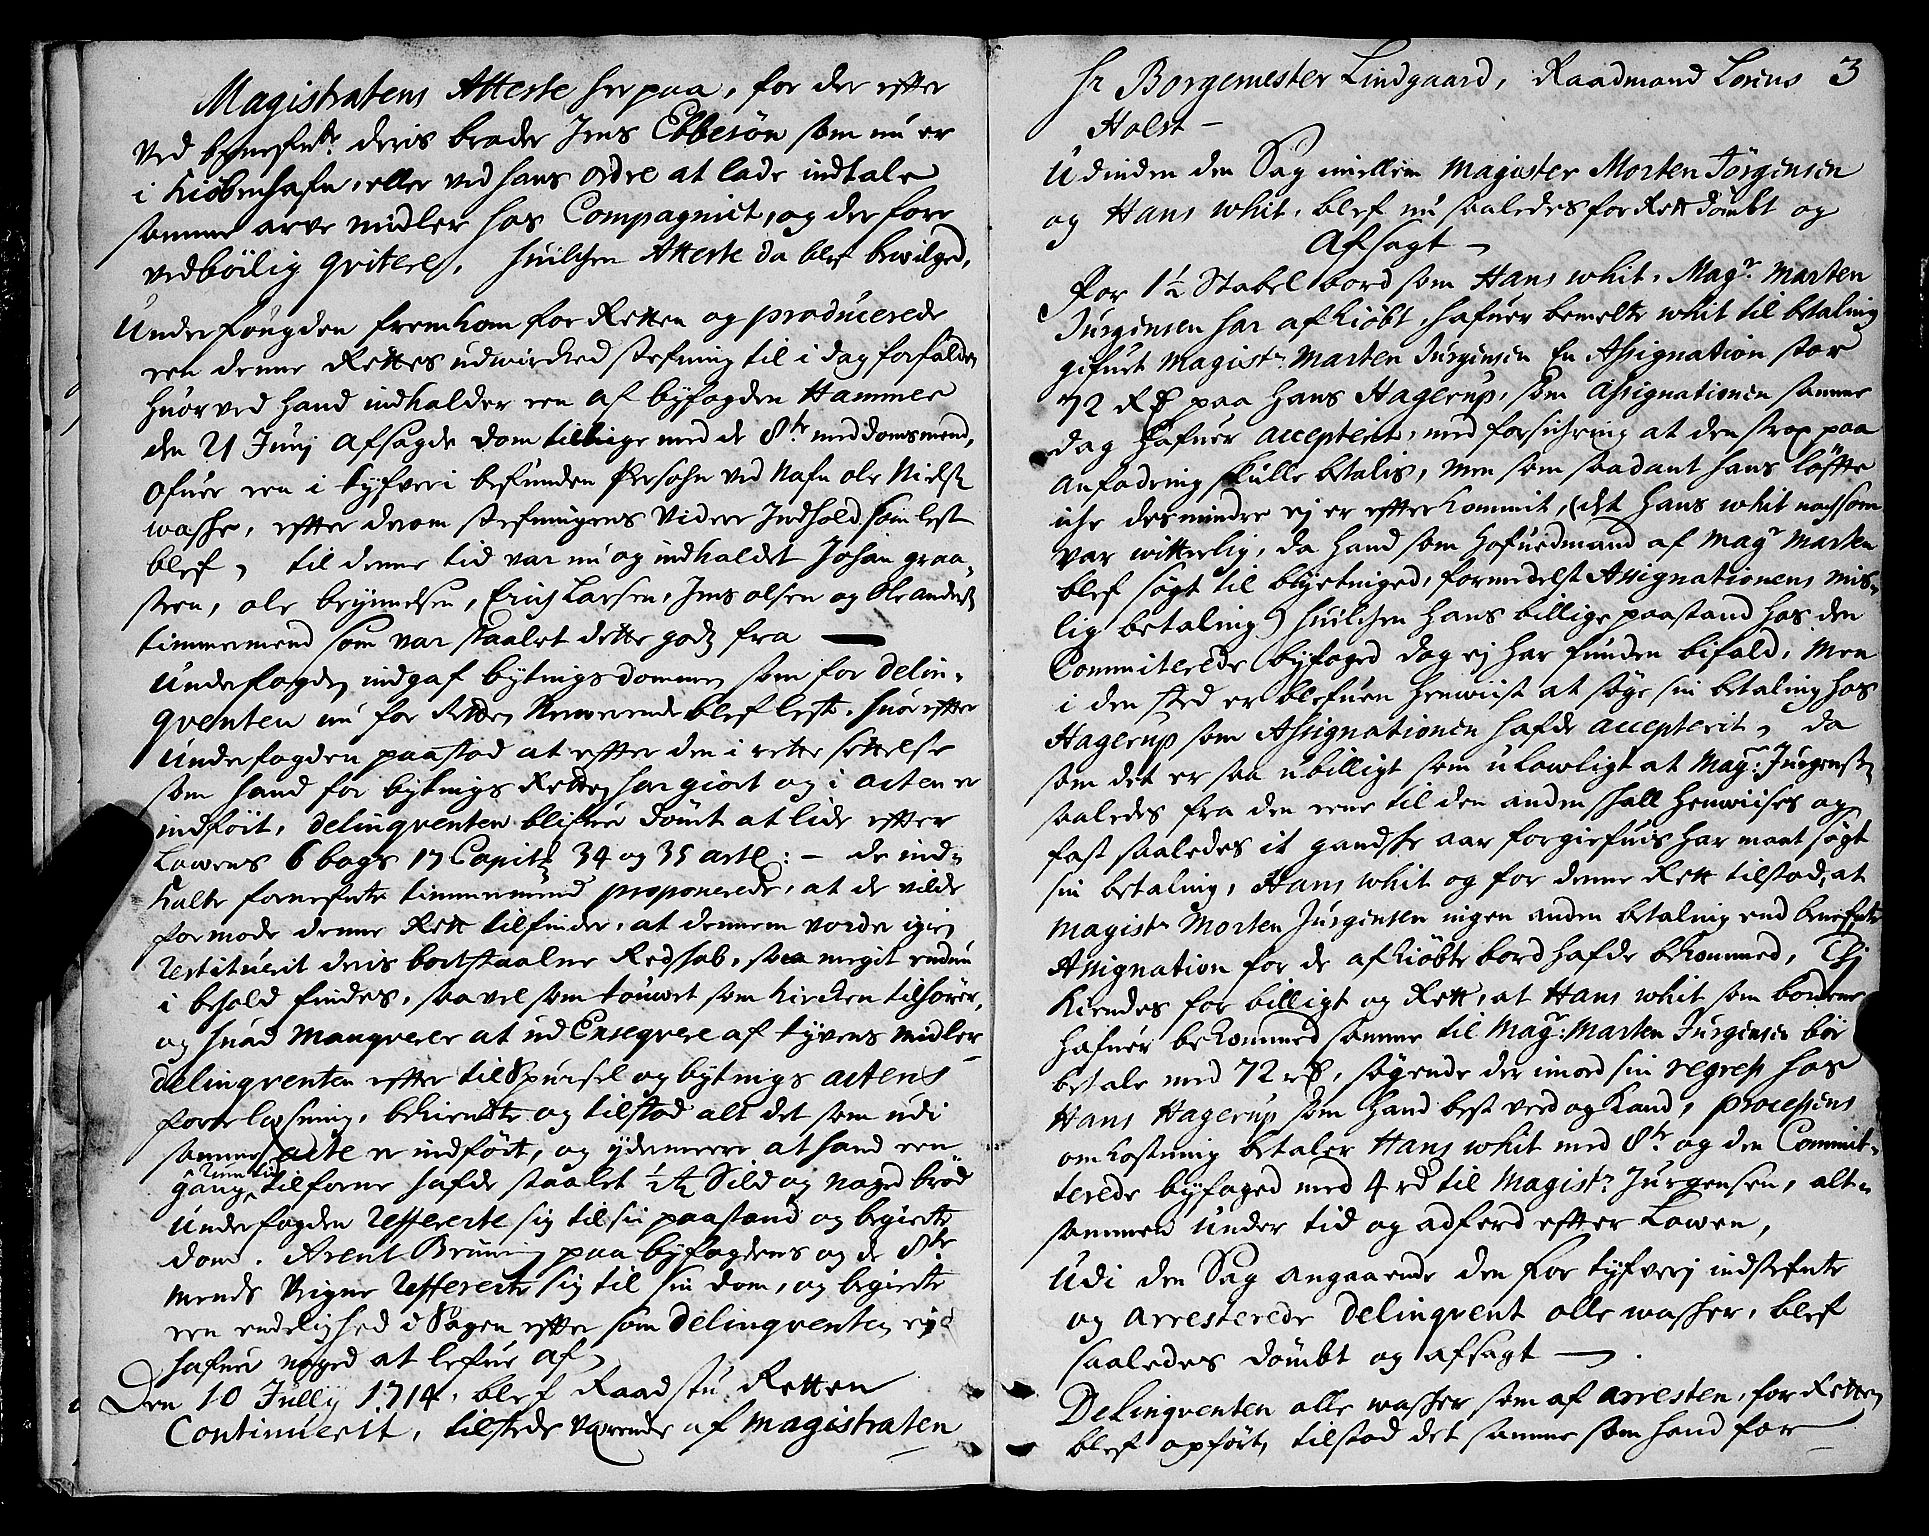 Magistratens Atteste her paa, for der efter
ved benefnte deris broder Jens Ebbesøn som nu er
i Kiøbenhafn, eller ved hans ordre at lade indtale
samme arve midler hos Compagniet, og derfore
vedbørlig qvitere, huilchen Atteste da blef bevilged,
Underfougden fremkom for Retten og producerede
een denne Rettes udwirched stefning til i dag forfalden
huorved hand indkalder een af byfogden Hammer
den 21 Junij afsagde dom tillige med de 8te meddomsmend,
ofuer een i tyfveri befunden Persohn ved Nafn ole Niels:
wasche, efter derom stefningens videre Indhold som lest
blef, til denne tid var nu og indkaldet Johan graa-
steen, ole brynnelsen, Erich Larsen, Jens olsen og Ole anders:
timmermend som var staalet dette godz fra —
Underfogden indgaf bytingsdommen som for delin-
qventen nu for Retten Nerværende blef lest, huorefter
Underfogden paastod at efter den i rette settelse
som hand for bytings Retten har giort og i acten er
indført, delinqventen blifuer dømt at lide efter
Lowens 6 bogs 17 Capitl 34 og 35 artl: – de ind-
kalte fornefnte timmermend proponerede, at de vilde
formode denne Rett tilfinder, at dennem vorder igien
restituerit deris bortstaalne Redskab, saa megit endnu
i behold findes, saavel som touwet som kircken tilhører,
og huad manqverer at ud Exseqvere af tyvens midler
delinqventen efter tilspursel og bytings actens
forelæsning, bekiendte og tilstod alt det som udi
samme acte er indført, og ydermeere at hand een
gang tilforne hafde staalet ½ tz Sild og noged brød
Underfogden refererte sig til sin paastand og begierte
dom. Arent Brüning paa byfogdens og de 8te
mends Vegne refererte sig til sin dom, og begierte
een endelighed i Sagen efter som delinqventen ej
hafuer noged at lefue af,
Den 10 Julij 1714, blef Raadstu Retten
Continuerit, tilstede værende af magistraten
hr Borgemester Lindgaard, Raadmand Lorens 3
Holst –
Udinden den Sag imellem Magister Morten Jørgensen
og Hans Whit, blef nu saaledes for Rett dømbt og
Afsagt –
For 1½ Stabel bord som Hans whit, Magr. Marten
Jürgensen har afkiøbt, hafuer bemelte whit til betaling
gifuet Magistr. Marten Jürgensen En Assignation stor
72 Rd paa Hans Hagerup, som Assignationen samme
dag hafuer accepterit, med forsichring at den strax paa
anfodring skulle betalis, men som saadant hans løffte
iche desmindre ej er efterkommit, (det Hans whit nochsom
var witterlig, da hand som hofuedmand af Magr Marten
blef søgt til betienged, formedelst Assignationens mis-
lig betaling) huilchen hans billige paastand hos den
Committerede byfoged dog ej har funden bifald, men
i den sted er blefuen henwiist at søge sin betaling hos
Hagerup som Assignationen hafde accepterit, da
som det er saa ubilligt som ulowligt at Magr: Jürgens:
saaledes fra den eene til den anden skall henwiises og
fast saaledes it gandske aar forgiefuis har maat søgt
sin betaling, Hans whit og for denne Rett tilstod, at
Magistr Morten Jürgensen ingen anden betaling end benefnte
Assignation for de afkiøbte bord hafde bekommed, Thj
Kiendes for billigt og Rett, at Hans whit som bordene
hafuer bekommed samme til Magr: Marten Jürgensen bør
betale med 72 rd, søgende der imod sin regress hos
Hans Hagerup som hand best ved og kand, processens
omkostning betaler Hans whit med 8tr og den Commit-
terede byfoged med 4 rd til Magistr. Jürgensen, alt-
sammen under tid og adferd efter Lowen,
Udi den Sag angaaende den for tyfverj indstefnte
og arresterede delinqvent olle wasker, blef
saaledes dømbt og afsagt —
Delinqventen olle wasker som af arresten, for Retten
blef opført, tilstod det samme som hand for